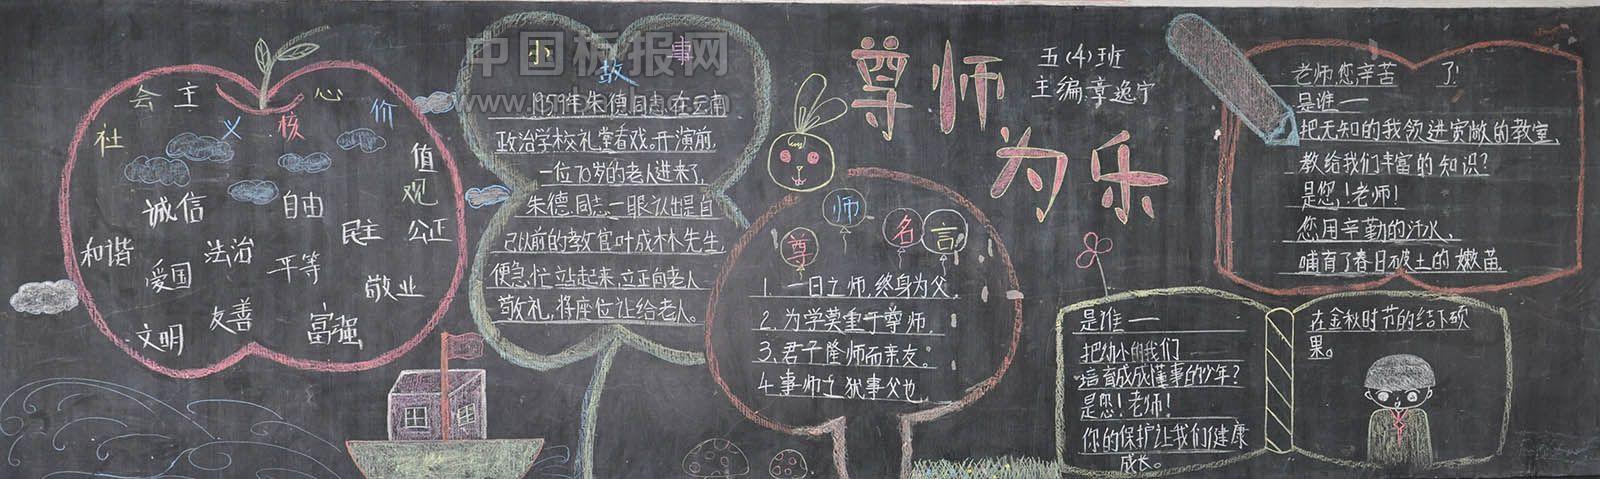 社会主义核心价值观
诚信
自由
民主
公正
和谐
法治
爱国
平等
敬业
文明
友善
富强
小故事
1959年朱德同志在云南
政治学校礼堂看戏。开演前,
一位70岁的老人进来了,
朱德同志一眼认出是自
己以前的教官叶成林先生,
便急忙站起来,立正向老人
敬礼,将座位让给老人。
中国板报网
尊师
为乐
五(4)班
主编:章逸宁
尊师名言
1、一日之师,终身为父。
2、为学莫重于尊师。
3、君子隆师而亲友。
4、事师之犹事父也。
老师,您辛苦了!
是谁——
把无知的我领进宽敞的教室,
教给我们丰富的知识?
是您!老师!
您用辛勤的汗水,
哺育了春日破土的嫩苗。
是谁——
把幼小的我们
培育成成懂事的少年?
是您!老师!
你的保护让我们健康
成长。
在金秋时节的结下硕
果。